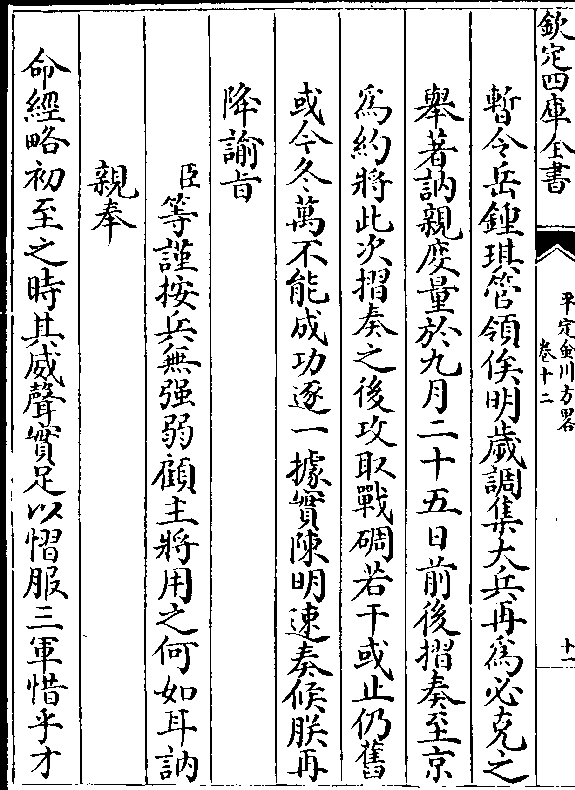 欽定四庫全書
平定金川方畧
卷十二
十一
暫令岳鍾琪管領俟明歲調集大兵再爲必克之
舉著訥親度量於九月二十五日前後摺奏至京
爲約將此次摺奏之後攻取戰碉若干或止仍舊
或今冬萬不能成功逐一據實陳明速奏候朕再
降諭旨
臣等謹按兵無强弱顧主將用之何如耳訥
親奉
命經略初至之時其威聲實足以慴服三軍惜乎才